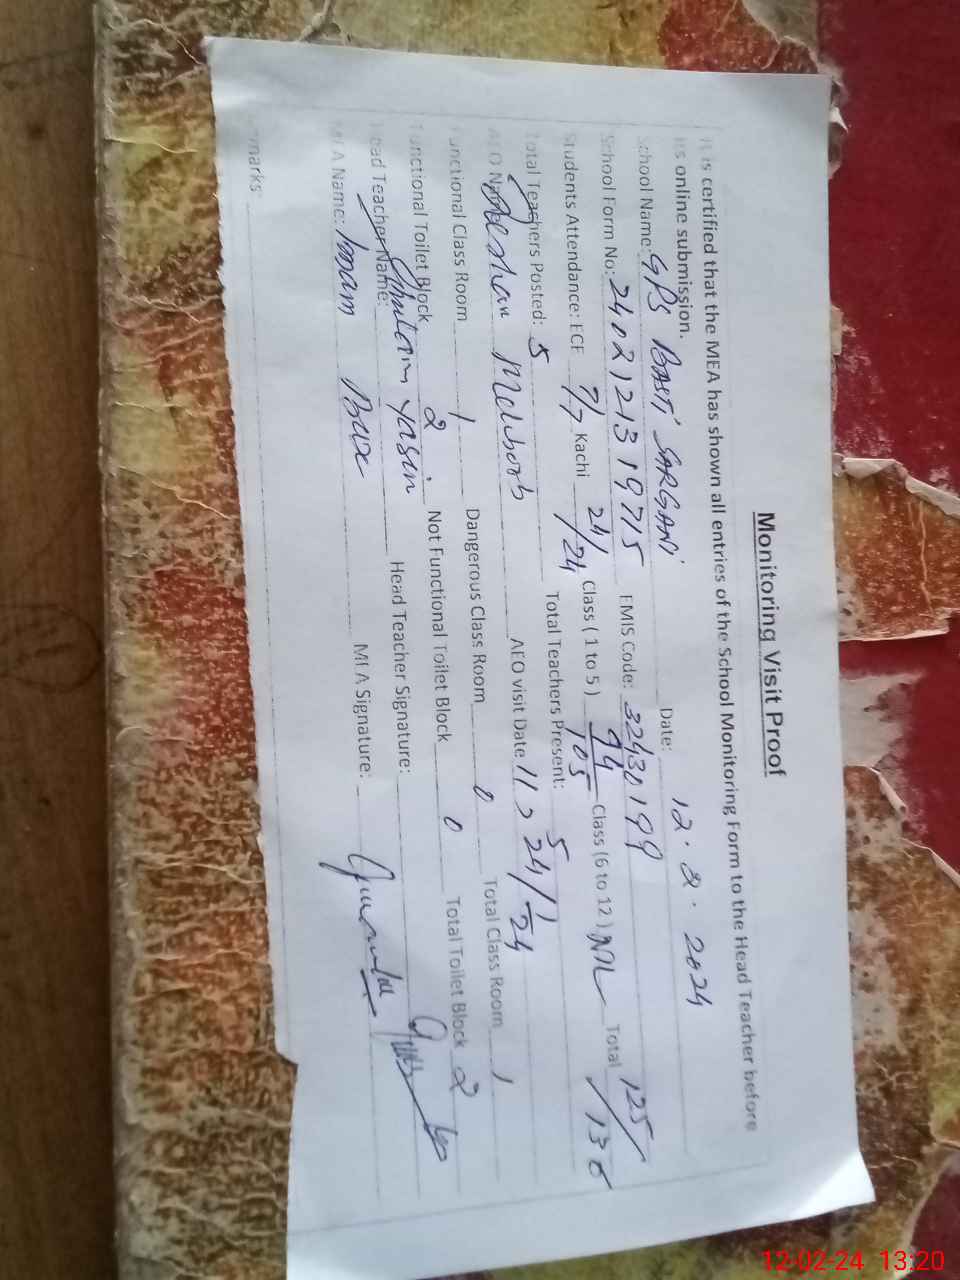 Monitoring Visit Proof
It is certified that the MEA has shown all entries of the School Monitoring Form to the Head Teacher before
its online submission.
School Name: GPS BASTI SARGANI Date: 12.2.2024
School Form No: 2402121319715 EMIS Code: 32430199
Students Attendance: ECE 7/7 Kachi 24/24 Class (1 to 5) 94/105 Class (6 to 12) NIL Total 125/136
Total Teachers Posted: 5 Total Teachers Present: 5
AEO Name Mehboob AEO visit Date 24/1/24
Functional Class Room 1 Dangerous Class Room 0 Total Class Room 1
Functional Toilet Block 2 Not Functional Toilet Block 0 Total Toilet Block 2
Head Teacher Name: Yasin Head Teacher Signature:
MEA Name: Imam Bux MEA Signature:
marks:
12-02-24 13:20